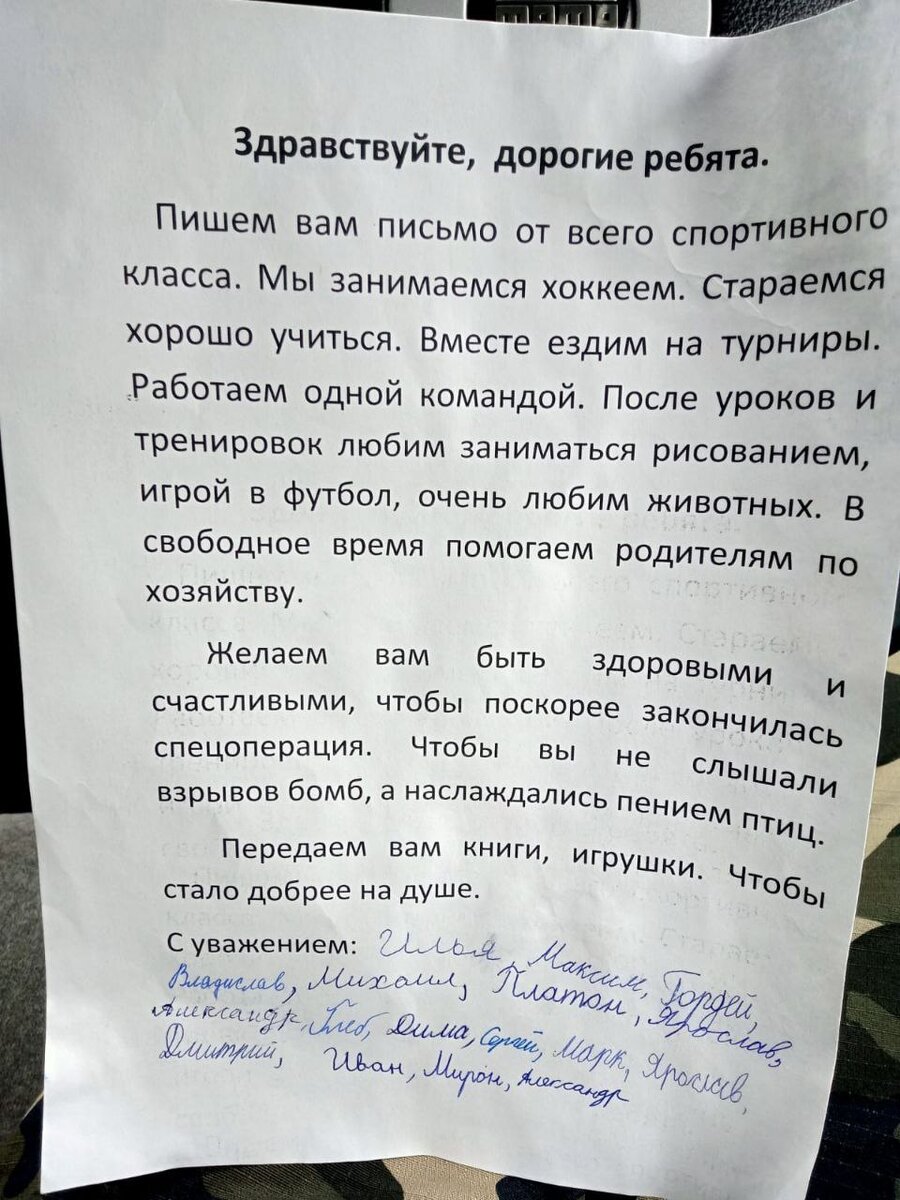 Здравствуйте, дорогие ребята.
Пишем вам письмо от всего спортивного
класса. Мы занимаемся хоккеем. Стараемся
хорошо учиться. Вместе ездим на турниры.
Работаем одной командой. После уроков и
тренировок любим заниматься рисованием,
игрой в футбол, очень любим животных. В
свободное время помогаем родителям по
хозяйству.
Желаем вам быть здоровыми и
счастливыми, чтобы поскорее закончилась
спецоперация. Чтобы вы не слышали
взрывов бомб, а наслаждались пением птиц.
Передаем вам книги, игрушки. Чтобы
стало добрее на душе.
С уважением: Илья, Максим, Гордей,
Владислав, Михаил, Платон, Ярослав,
Александр, Глеб, Дима, Сергей, Марк, Ярослав,
Дмитрий, Иван, Мирон, Александр